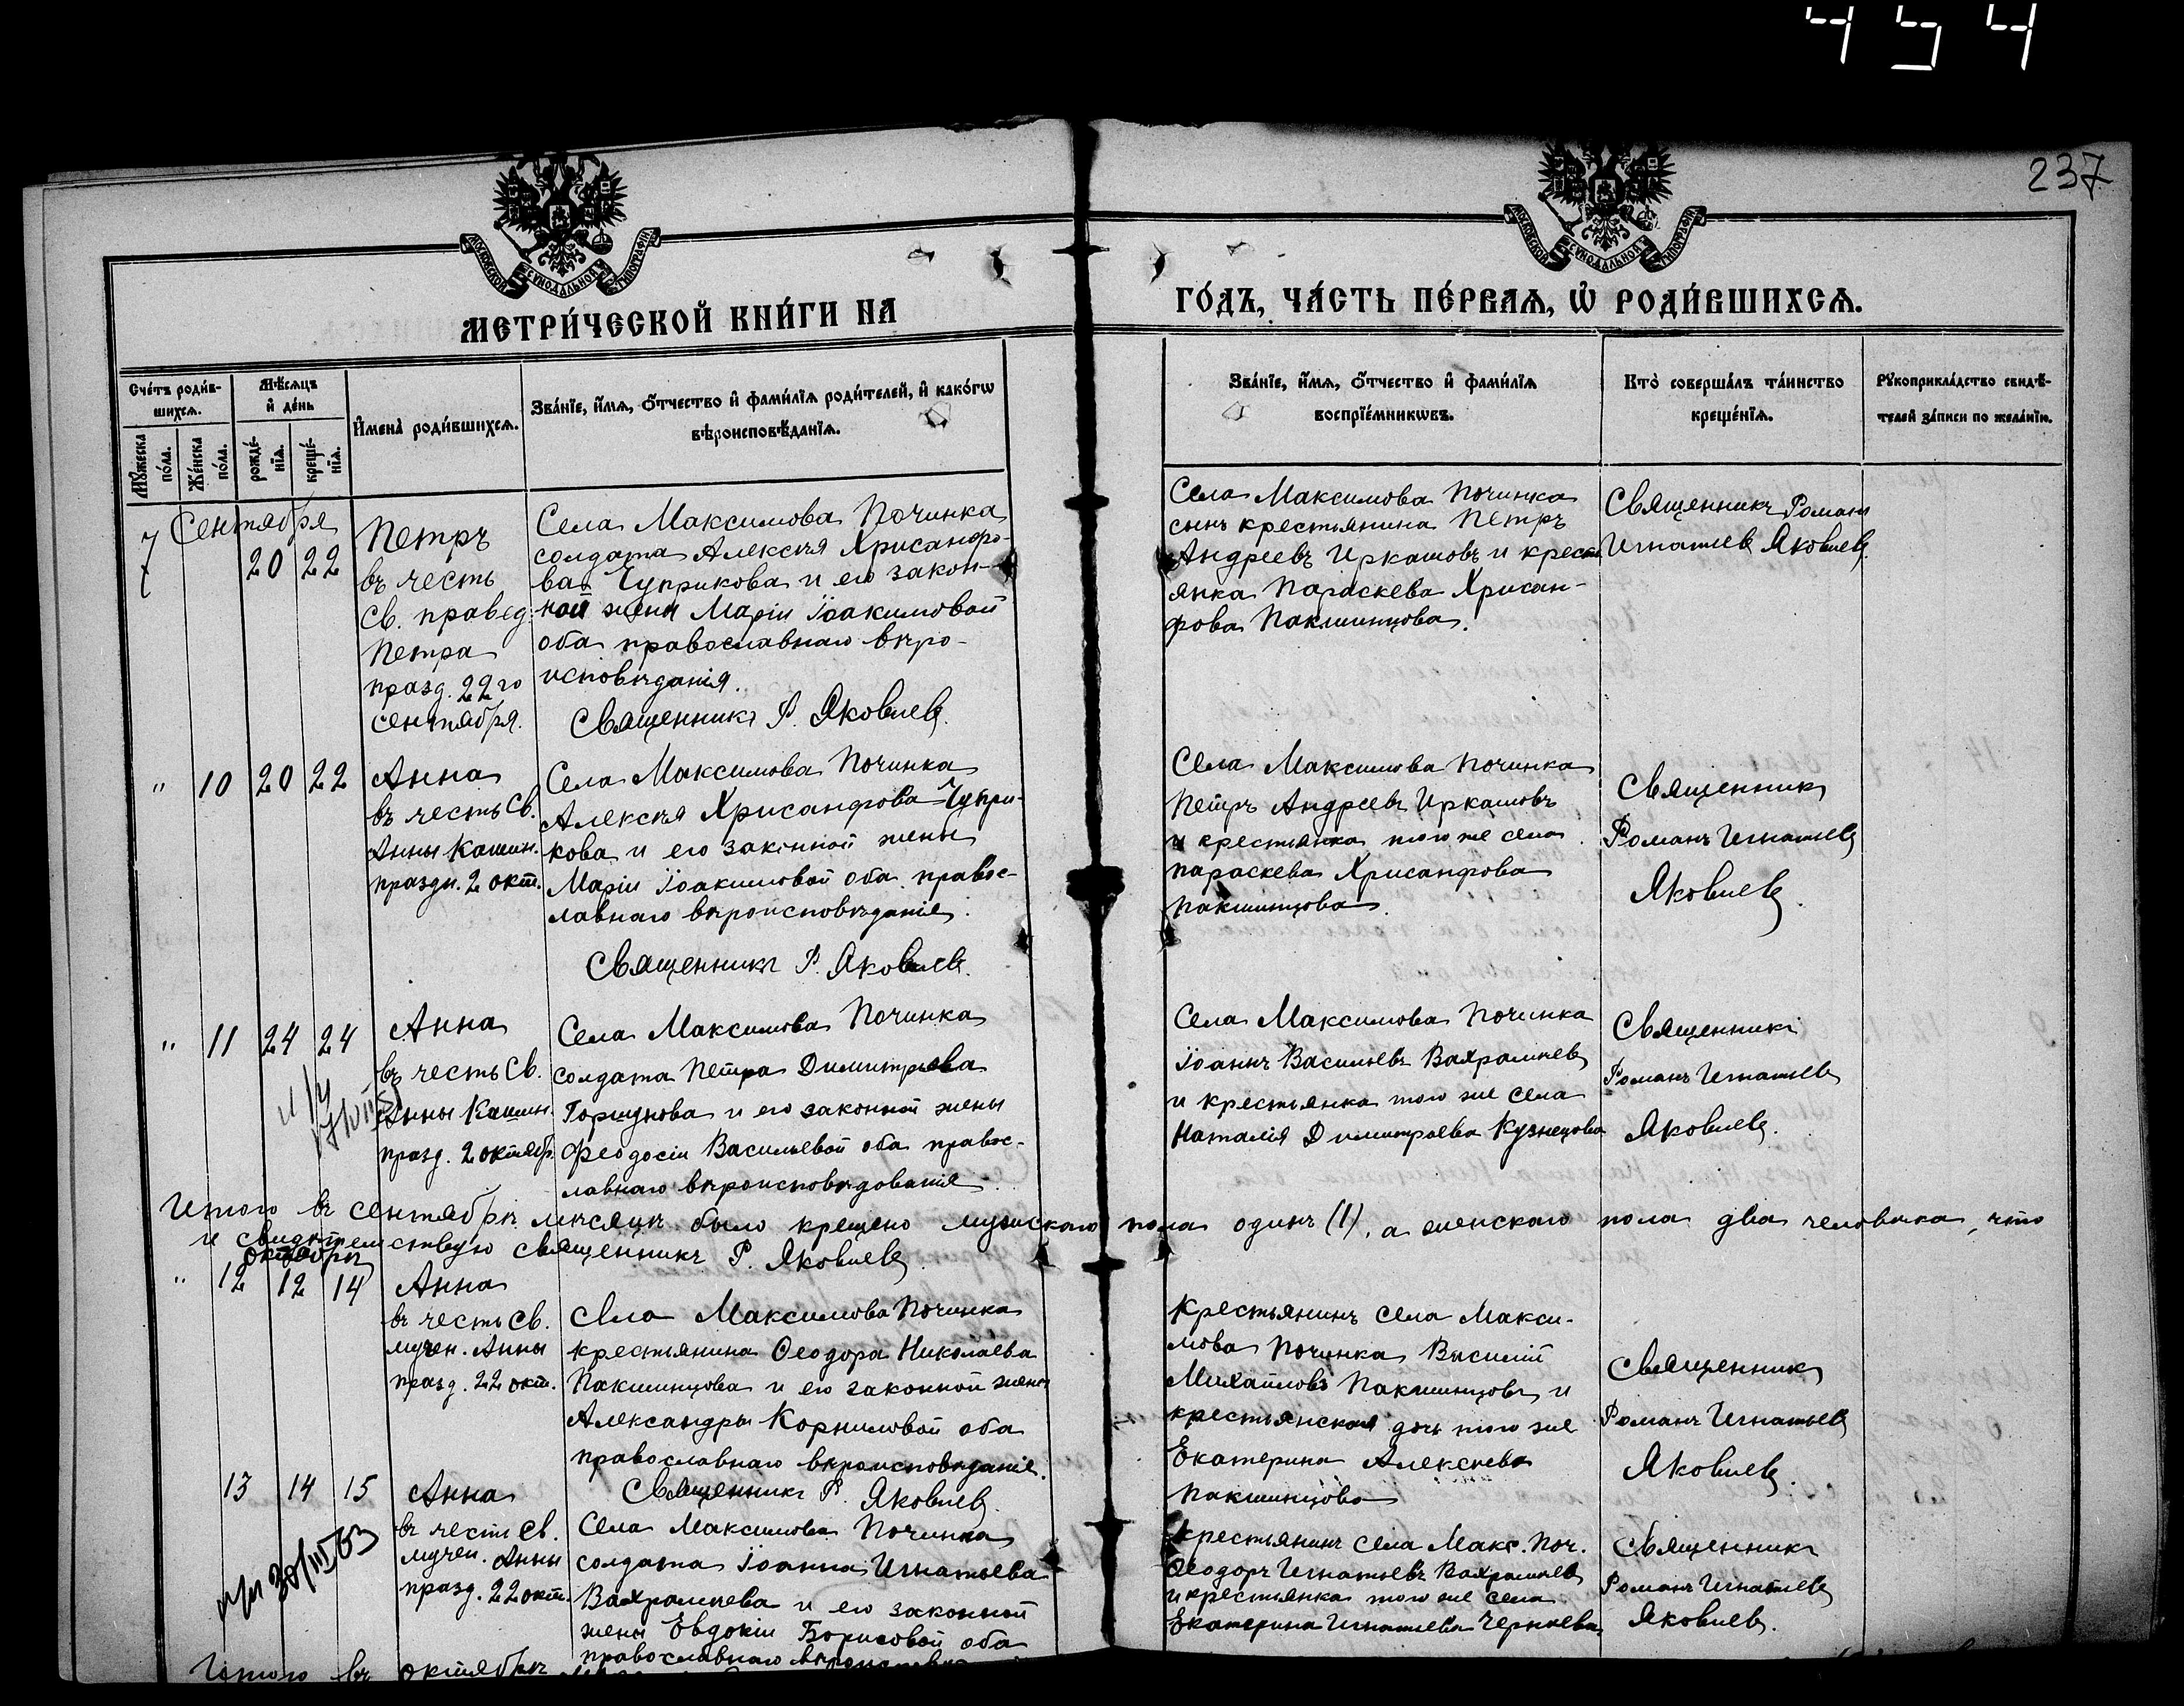 454
237
МОСКОВСКОЙ СѴНОДАЛЬНОЙ ТИПОГРАФІИ
МОСКОВСКОЙ СѴНОДАЛЬНОЙ ТИПОГРАФІИ
МЕТРИ́ЧЕСКОЙ КНИ́ГИ НА
ГО́ДЪ, ЧА́СТЬ ПЕ́РВАЯ, Ѽ РОДИ́ВШИХСЯ.
Сче́тъ роди́в-
шихся.
Му́жеска
по́ла.
Же́нска
по́ла.
Мѣ́сяцъ
и́ де́нь
рожде́-
нїя.
креще́-
нїя.
И́мена̀ роди́вшихся.
Зва́нїе, и́мя, ѻ́тчество и́ фами́лїя роди́телей, и́ како́гѡ
вѣроисповѣ́данїя.
Зва́нїе, и́мя, ѻ́тчество и́ фами́лїя
воспрїе́мникѡвъ.
Кто̀ соверша́лъ та́инство
креще́нїя.
Рꙋкоприкла́дство свидѣ́-
телей за́писи по жела́нїю.
7 Сентября
20 22
Петръ
въ честь
Св. правед.
Петра
празд. 22го
сентября.
Села Максимова Починка
солдата Алексѣя Хрисанфо-
ва Чуприкова и его закон-
ной жены Маріи Іоакимовой
оба православнаго вѣро-
исповѣданія.
Священникъ Р. Яковлевъ.
Села Максимова Починка
сынъ крестьянина Петръ
Андреевъ Иркашовъ и крест
янка Параскева Хрисан-
фова Пакшинцова.
Священникъ Романъ
Игнатьевъ Яковлевъ.
" 10 20 22
Анна
въ честь Св.
Анны Кашин.
праздн. 2 окт.
Села Максимова Починка
Алексѣя Хрисанфова Чупри-
кова и его законной жены
Маріи Іоакимовой оба правос-
лавнаго вѣроисповѣданія.
Священникъ Р. Яковлевъ.
Села Максимова Починка
Петръ Андреевъ Иркашовъ
и крестьянка того же села
Параскева Хрисанфова
Пакшинцова.
Священникъ
Романъ Игнатьевъ
Яковлевъ.
" 11 24 24
Анна
въ честь Св.
Анны Кашин.
празд. 2 октябр.
Села Максимова Починка
солдата Петра Димитріева
Горшунова и его законной жены
Феодосіи Васильевой оба правос-
лавнаго вѣроисповѣдованія.
Села Максимова Починка
Іоаннъ Васильевъ Вахрамѣевъ
и крестьянка того же села
Наталія Димитріева Кузнецова
Священникъ
Романъ Игнатьевъ
Яковлевъ.
Итого въ сентябрѣ мѣсяцѣ было крещено мужскаго пола одинъ (1), а женскаго пола два человѣка, что
и свидѣтельствую священникъ Р. Яковлевъ.
октябрь
" 12 12 14
Анна
въ честь св.
мучен. Анны
празд. 22 окт.
Села Максимова Починка
крестьянина Ѳеодора Николаева
Пакшинцова и его законной жены
Александры Корниловой оба
православнаго вѣроисповѣданія.
Священникъ Р. Яковлевъ.
Крестьянинъ села Макси-
мова Починка Василій
Михайловъ Пакшинцовъ и
крестьянская дочь того же
Екатерина Алексѣева
Пакшинцова
Священникъ
Романъ Игнатьевъ
Яковлевъ.
13 14 15
30/III 63
Анна
въ честь св.
мучен. Анны
празд. 22 окт.
Села Максимова Починка
солдата Іоанна Игнатьева
Вахрамѣева и его законной
жены Евдокіи Борисовой оба
православнаго
Крестьянинъ села Макс. Поч.
Ѳеодоръ Игнатьевъ Вахрамѣевъ
и крестьянка того же села
Екатерина Игнатьева Черняева.
Священникъ
Романъ Игнатьевъ
Яковлевъ.
Итого въ октябрѣ